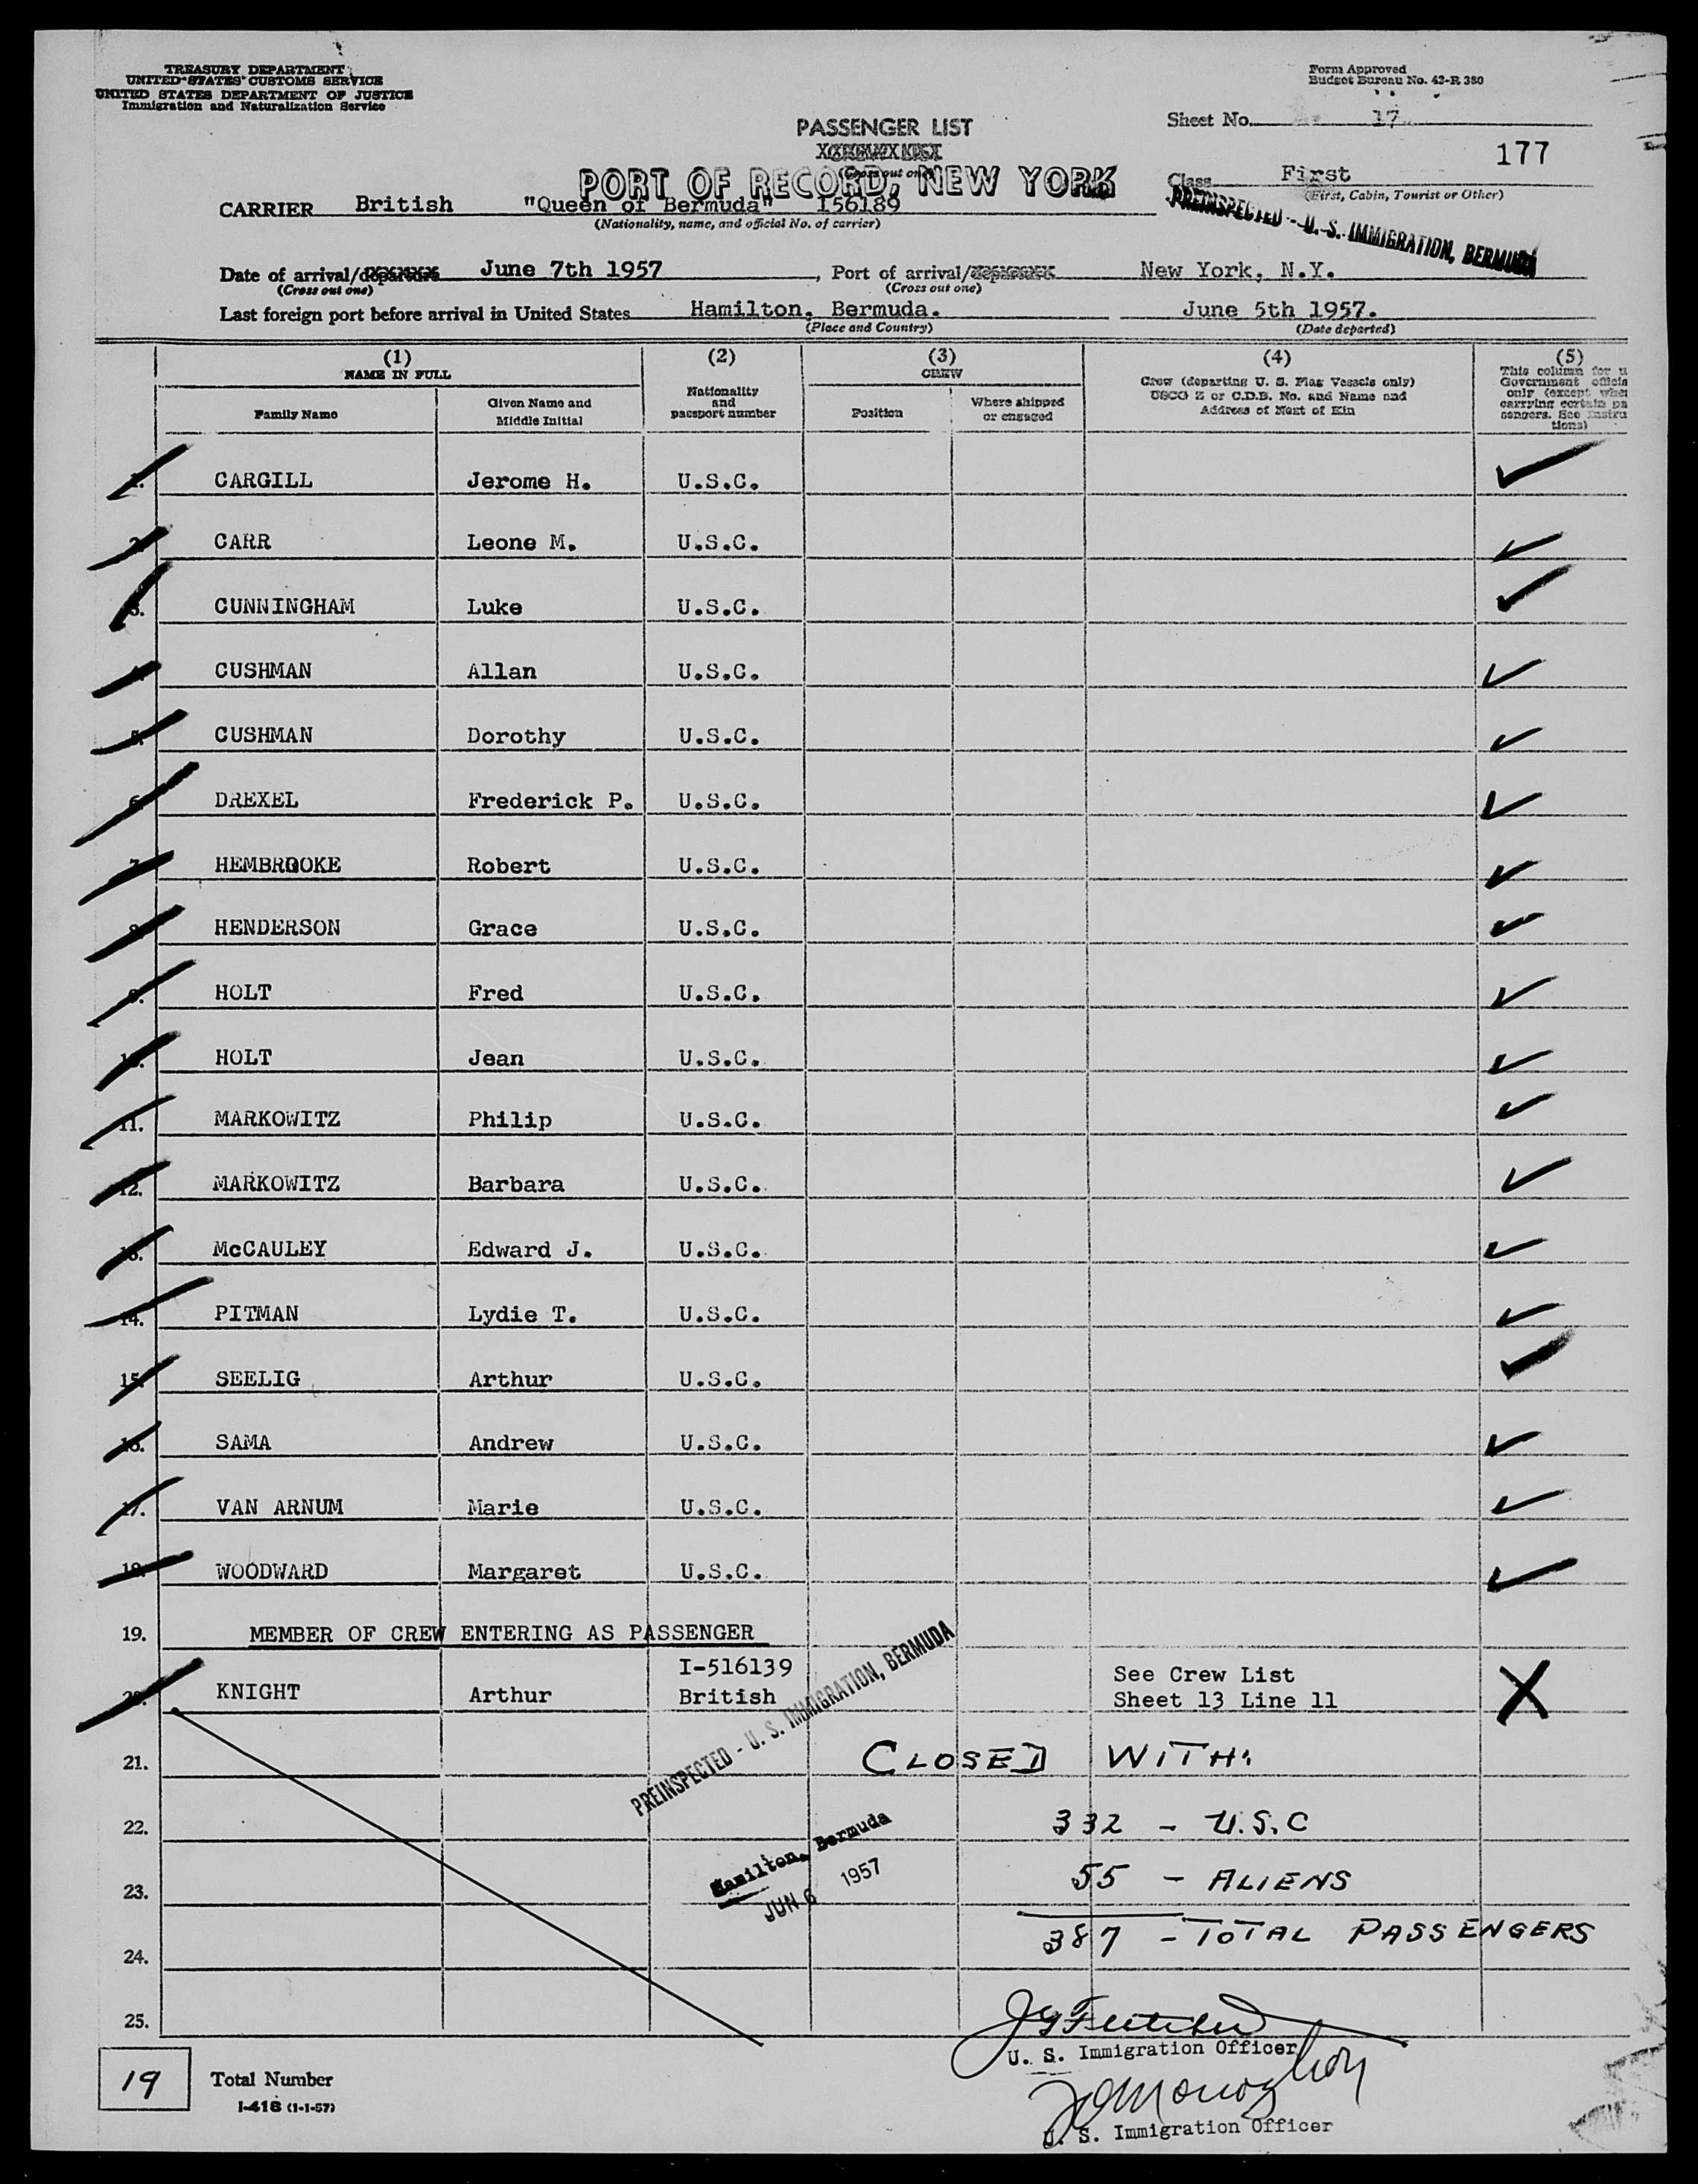 TREASURY DEPARTMENT
UNITED STATES CUSTOMS SERVICE
UNITED STATES DEPARTMENT OF JUSTICE
Immigration and Naturalization Service
Form Approved
Budget Bureau No. 43-R 380
Sheet No. 17
177
PASSENGER LIST
(Cross out one)
PORT OF RECORD, NEW YORK
Class First
(First, Cabin, Tourist or Other)
PREINSPECTED - U. S. IMMIGRATION, BERMUDA
CARRIER British "Queen of Bermuda" 156189
(Nationality, name, and official No. of carrier)
Date of arrival/departure June 7th 1957, Port of arrival/ New York, N.Y.
(Cross out one) (Cross out one)
Last foreign port before arrival in United States Hamilton, Bermuda. June 5th 1957.
(Place and Country) (Date departed)
(1) NAME IN FULL
Family Name
Given Name and Middle Initial
(2) Nationality and passport number
(3) CREW
Position
Where shipped or engaged
(4) Crew (departing U. S. Flag Vessels only) USCG Z or C.D.B. No. and Name and Address of Next of Kin
(5) This column for u
Government officia
only (except whe
carrying certain pa
sengers. See instru
tions)
1. CARGILL Jerome H. U.S.C.
2. CARR Leone M. U.S.C.
3. CUNNINGHAM Luke U.S.C.
4. CUSHMAN Allan U.S.C.
5. CUSHMAN Dorothy U.S.C.
6. DREXEL Frederick P. U.S.C.
7. HEMBROOKE Robert U.S.C.
8. HENDERSON Grace U.S.C.
9. HOLT Fred U.S.C.
10. HOLT Jean U.S.C.
11. MARKOWITZ Philip U.S.C.
12. MARKOWITZ Barbara U.S.C.
13. McCAULEY Edward J. U.S.C.
14. PITMAN Lydie T. U.S.C.
15. SEELIG Arthur U.S.C.
16. SAMA Andrew U.S.C.
17. VAN ARNUM Marie U.S.C.
18. WOODWARD Margaret U.S.C.
19. MEMBER OF CREW ENTERING AS PASSENGER
20. KNIGHT Arthur I-516139 British See Crew List Sheet 13 Line 11 X
PREINSPECTED - U. S. IMMIGRATION, BERMUDA
21. CLOSED WITH:
22. 332 - U.S.C
Hamilton, Bermuda
JUN 6 1957
23. 55 - ALIENS
24. 387 - TOTAL PASSENGERS
25.
U. S. Immigration Officer
19 Total Number
I-418 (1-1-57)
U. S. Immigration Officer